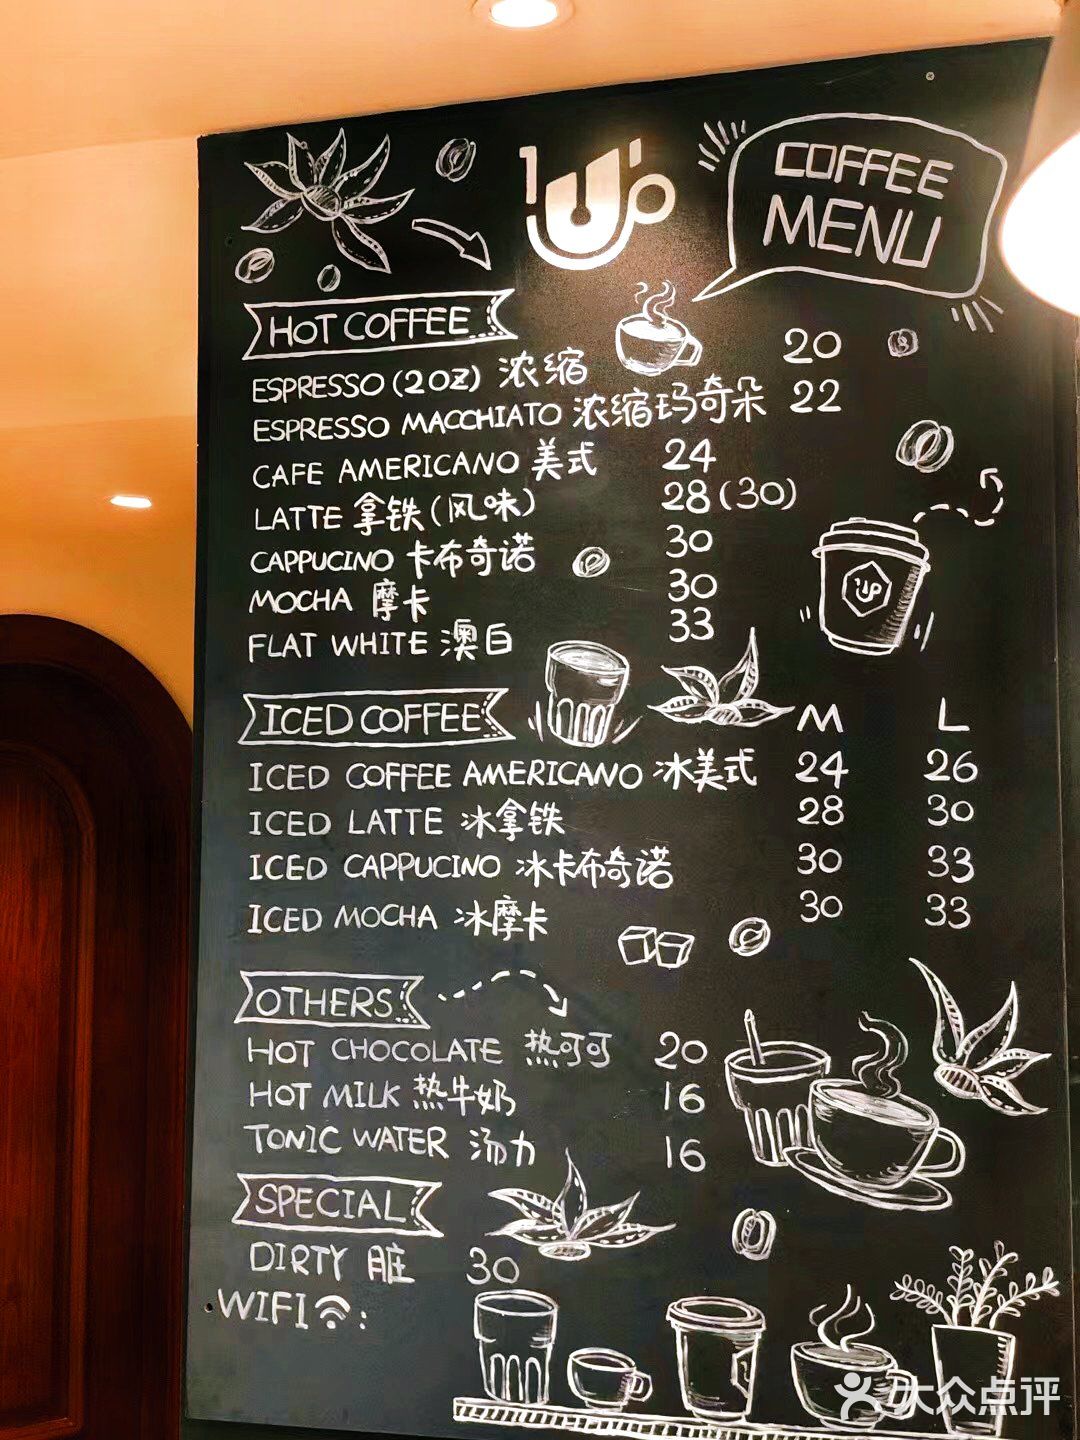 1Up
COFFEE
MENU
HOT COFFEE
ESPRESSO (2OZ) 浓缩 20
ESPRESSO MACCHIATO 浓缩玛奇朵 22
CAFE AMERICANO 美式 24
LATTE 拿铁(风味) 28(30)
CAPPUCINO 卡布奇诺 30
MOCHA 摩卡 30
FLAT WHITE 澳白 33
1UP
ICED COFFEE M L
ICED COFFEE AMERICANO 冰美式 24 26
ICED LATTE 冰拿铁 28 30
ICED CAPPUCINO 冰卡布奇诺 30 33
ICED MOCHA 冰摩卡 30 33
OTHERS
HOT CHOCOLATE 热可可 20
HOT MILK 热牛奶 16
TONIC WATER 汤力 16
SPECIAL
DIRTY 脏 30
WIFI :
大众点评